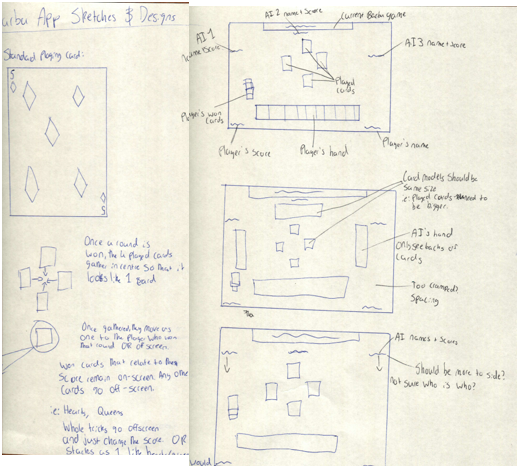 App Sketches & Designs
Standard Playing Card:
5
5
Once a round is
won, the 4 played cards
gather in centre so that it
looks like 1 card
Once gathered, they move as
one to the player who won
that round OR offscreen.
Won cards that relate to the
score remain on-screen. Any other
cards go off-screen.
i.e: Hearts, Queens
Whole tricks go offscreen
and just change the score. OR
stacks as 1 like
AI 1
name+score
AI 2 name+score
Current Barbu game
AI 3 name+score
Played
cards
Player's won
cards
Player's score
Player's hand
Player's name
Card models should be
same size
i.e: Played cards need to
be bigger.
AI's hand
Only see backs of
cards
Too cramped?
Spacing
AI names + scores
Should be more to side?
not sure who is who?
would